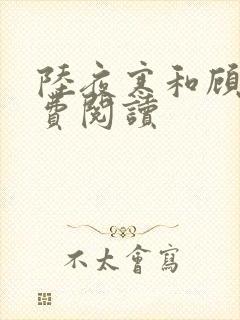 陸夜寒和顧
費閱讀
不太會寫